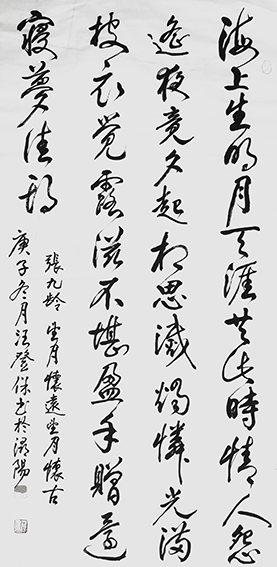 海上生明月天涯共此時情人怨
遙夜竟夕起相思滅燭憐光滿
披衣覺露滋不堪盈手贈還
寢夢佳期
張九齡望月懷遠望月懷古
庚子冬月汪登保书於陽